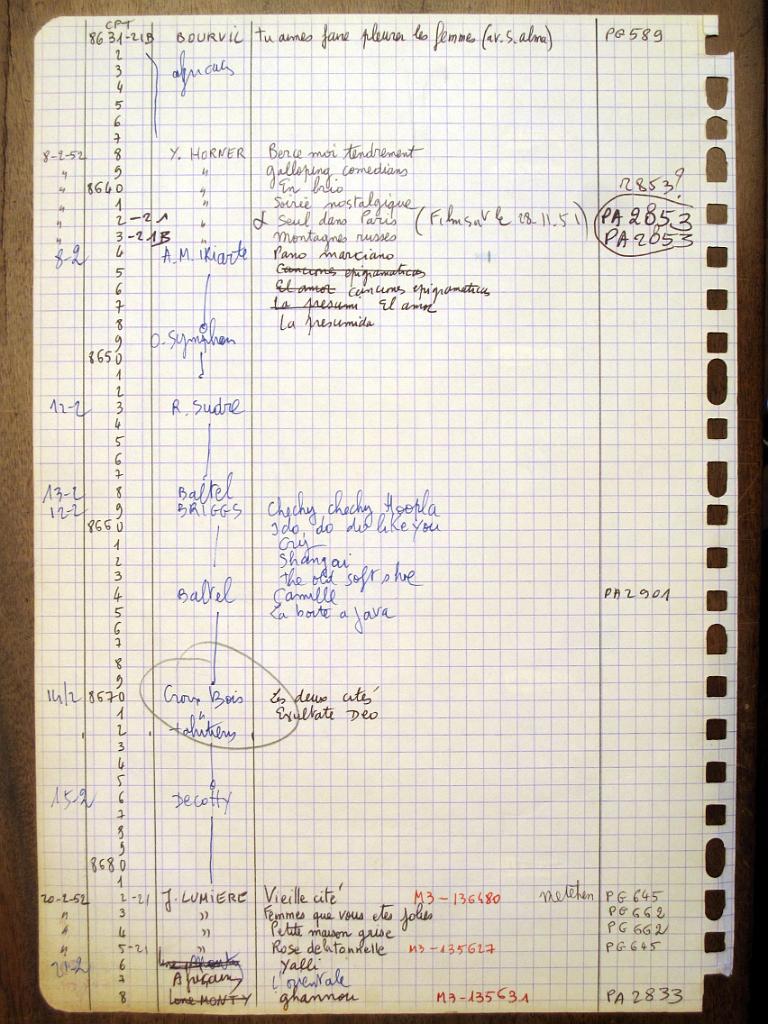 CPT
8631-21B BOURVIL tu aimes faire pleurer les femmes (av. S. alma) PG 589
2
3
4
5
6
7
8-2-52 8 Y. HORNER Berce moi tendrement
" 9 " galloping comedians
" 8640 " En brio 2853?
" 1 " Soirée nostalgique
" 2-21 " Seul dans Paris (Film 28.11.51) PA 2853
" 3-21B " Montagnes russes PA 2053
8-2 4 A.M. IRiarte Pano marciano
5 Canciones epigramaticas
6 El amor canciones epigramaticas
7 La presumi El amor
8 La presumida
9
8650
1
2
12-2 3 R. Sudre
4
5
6
7
13-2 8 Baltel
12-2 9 BRIGGS Chechy chechy Hoopla
8660 I do, do do like you
1 Cry
2 Shangai
3 the old soft shoe
4 Baltel Camille PA2901
5 La boite a java
6
7
8
9
14/2 8670 Croix Bois Les deux cités
1 " Exultate Deo
2 tahitiens
3
4
5
15-2 6 Decotty
7
8
9
8680
1
20-2-52 2-21 J. LUMIERE Vieille cité M3-136480 PG 645
" 3 " Femmes que vous etes jolies PG 662
" 4 " Petite maison grise PG 662
" 5-21 " Rose de la tonnelle M3-135627 PG 645
21-2 6 Yalli
7 Africains L'orientale
8 Lone MONTY ghannou M3-135631 PA 2833